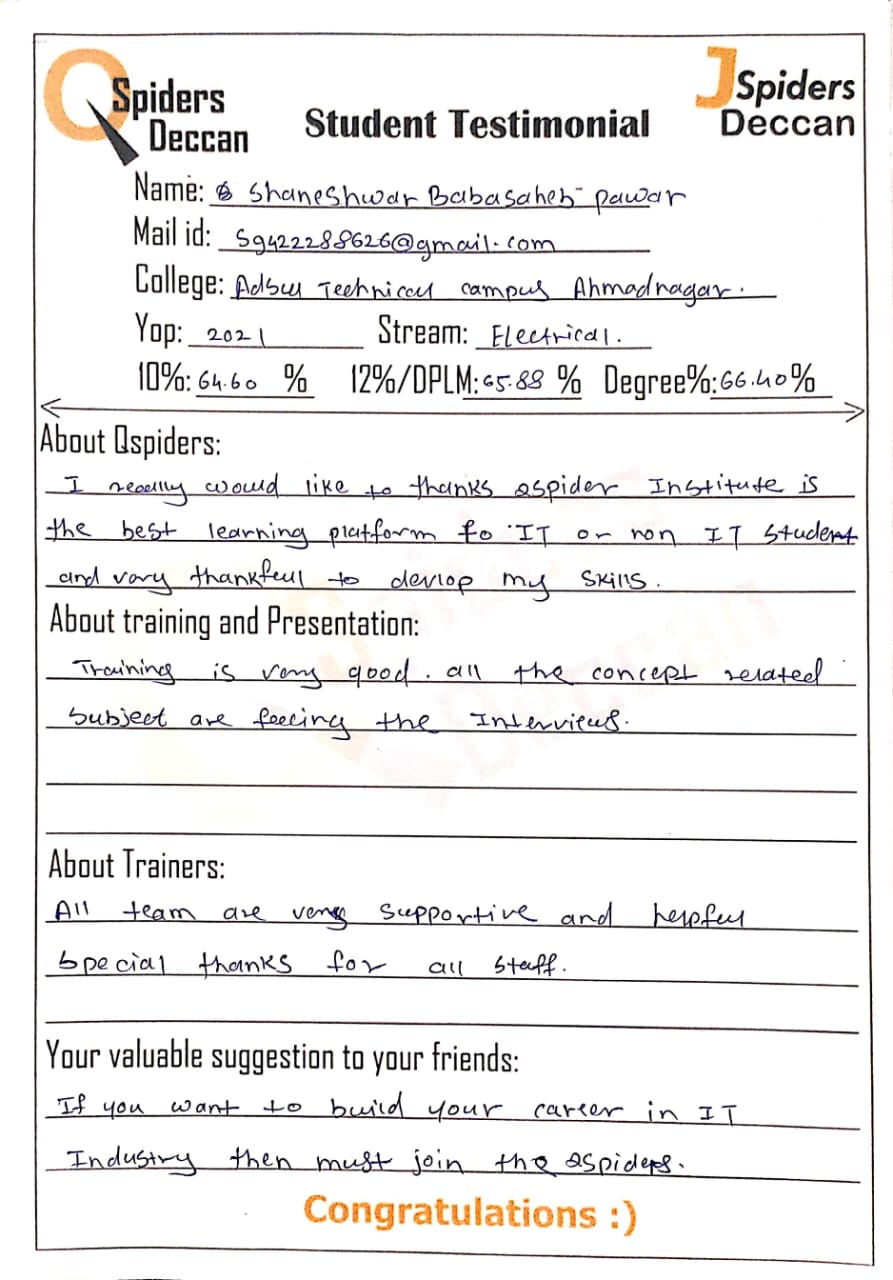 QSpiders Deccan
Student Testimonial
JSpiders Deccan
Name: Shaneshwar Babasaheb pawar
Mail id: sg422288626@gmail.com
College: Adsul Technical campus Ahmadnagar.
Yop: 2021 Stream: Electrical.
10%: 64.60 % 12%/DPLM: 65.88 % Degree%: 66.40%
About Qspiders:
I really would like to thanks Qspider Institute is
the best learning platform fo IT or non IT student
and vary thankful to devlop my skills.
About training and Presentation:
Training is very good. all the concept related
subject are feeling the Interviews.
About Trainers:
All team are very supportive and helpful
special thanks for all staff.
Your valuable suggestion to your friends:
If you want to build your career in IT
Industry then must join the Qspiders.
Congratulations :)